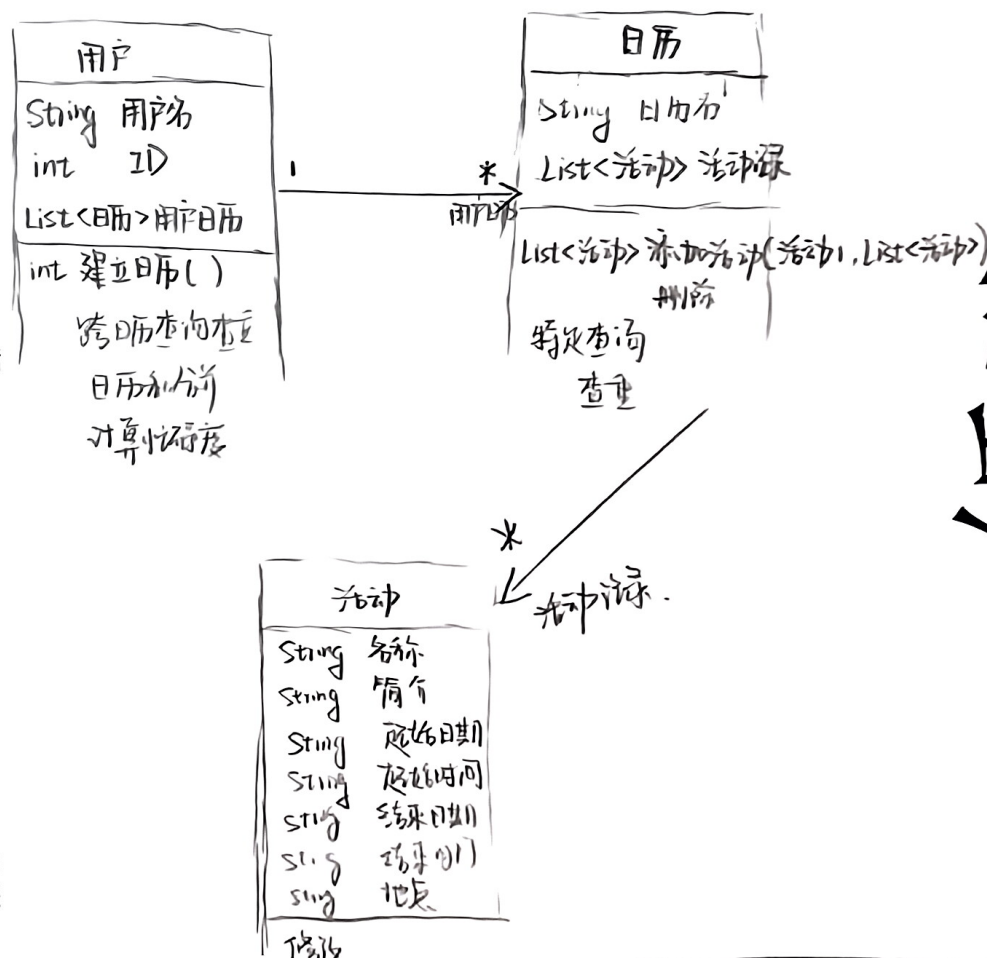 用户
String 用户名
int ID
List<日历>用户日历
int 建立日历()
跨日历查询查重
日历和合并
计算忙碌度
1
*
用户日历
日历
String 日历名
List<活动> 活动记录
List<活动> 添加活动(活动1, List<活动>)
删除
特定查询
查重
*
活动记录.
活动
String 名称
String 简介
String 起始日期
String 起始时间
Stig 结束日期
结束时间
地点
修改